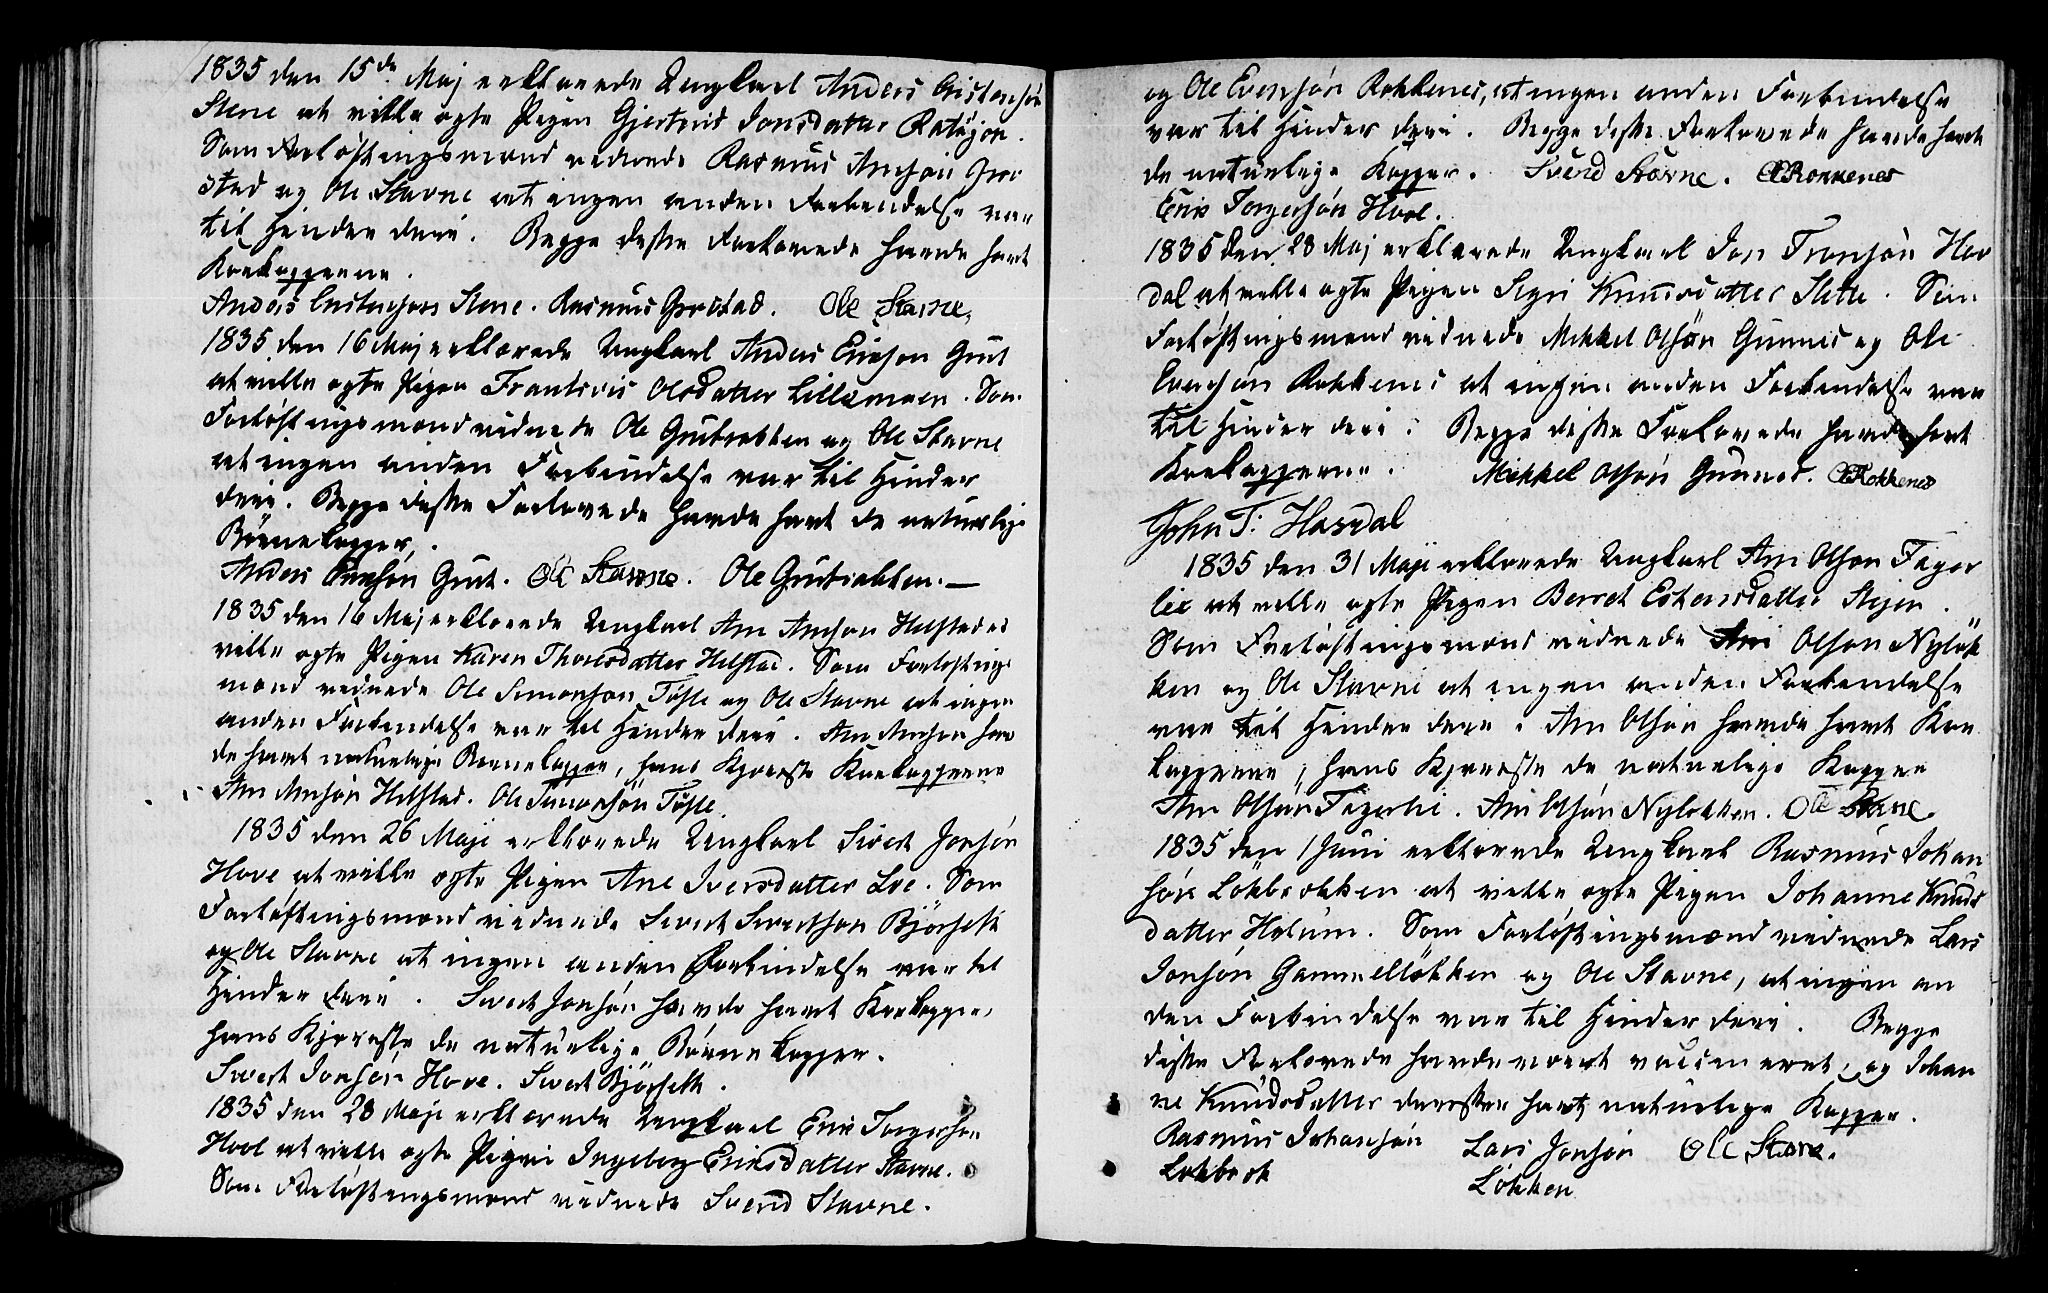 1835 den 15de Maj erklærede Ungkarl Anders Cristensøn
Stene at ville ægte Pigen Gjertrud Jonsdatter Ratsjon.
Som Forløftningsmænd vidnede Rasmus Arnsøn Gro
stad og Ole Stavne at ingen anden Forbindelse var
til Hinder deri. Begge disse Forlovede havde havt
Kokopperne.
Anders Cristensøn Stene. Rasmus Grostad. Ole Stavne.
1835 den 16 Maj erklærede Ungkarl Anders Erikson Grut
at ville ægte Pigen Frantsvis Olsdatter Lillemoen. Som
Forløftningsmænd vidnede Ole Grutsetken og Ole Stavne
at ingen anden Forbindelse var til Hinder
deri. Begge disse Forlovede havde havt de naturlige
Børnekopper.
Anders Eriksøn Grut. Ole Stavne. Ole Grutsetken.—
1835 den 16 Maj erklærede Ungkarl Arn Arnson Helstad at
ville ægte Pigen Karen Thoresdatter Helstad. Som Forløftnings
mænd vidnede Ole Simonson Tøfte og Ole Stavne at ingen
anden Forbindelse var til Hinder deri. Arn Arnson hav
de havt naturlige Børnekopper, hans Kjæreste Kokopperne
Arn Arnsøn Helstad. Ole Simonsøn Tøfte.
1835 den 26 Maji erklærede Ungkarl Sivert Jonsøn
Hove at ville ægte Pigen Ane Iversdatter Lve. Som
Forløftningsmænd vidnede Sivert Sivertson Bjørsett
og Ole Stavne at ingen anden Forbindelse var til
Hinder deri. Sivert Jonsøn havde havt Kokopper,
hans Kjæreste de naturlige Børnekopper.
Sivert Jonsøn Hove. Sivert Bjørsett.
1835 den 28 Maji erklærede Ungkarl Erik Torgerson
Hool at ville ægte Pigen Ingeborg Eriksdatter Stavne.
Som Forløftningsmænd vidnede Svend Stavne.
og Ole Evensøn Rokkenes, at ingen anden Forbindelse
var til Hinder deri. Begge disse Forlovede havde havt
de naturlige Kopper. Svend Stavne. OE Rokkenes
Erik Torgersøn Hool.
1835 den 28 Maj erklærede Ungkarl Jon Tronsøn Has
dal at ville ægte Pigen Sigri Knudsdatter Slette. Som
Forløftningsmænd vidnede Mikkel Olsøn Gunnes og Ole
Evensøn Rokkenes at ingen anden Forbindelse var
til Hinder deri. Begge disse Forlovede havde havt
Kokopperne. Mikkel Olsøn Gunnes. OE Rokkenes
John T: Hasdal
1835 den 31 Maji erklærede Ungkarl Arn Olson Fager
lie at ville ægte Pigen Berret Estensdatter Stejen.
Som Forløftningsmænd vidnede Arn Olson Nyløk
ken og Ole Stavne at ingen anden Forbindelse
var til Hinder deri. Arn Olsøn havde havt Ko
kopperne, hans Kjæreste de naturlige Kopper
Arn Olsøn Fagerlie. Arn Olsøn Nyløkken. Ole Stavne.
1835 den 1 Juni erklærede Ungkarl Rasmus Johan
søn Løkbrokken at ville ægte Pigen Johanne Knuds
datter Holum. Som Forløftningsmænd vidnede Lars
Jonsøn Gammelløkken og Ole Stavne, at ingen an
den Forbindelse var til Hinder deri. Begge
disse Forlovede havde været vaccineret, og Johan
ne Knudsdatter derefter havt naturlige Kopper.
Rasmus Johansøn Lars Jonsøn Ole Stavne.
Løkbrok Løkken